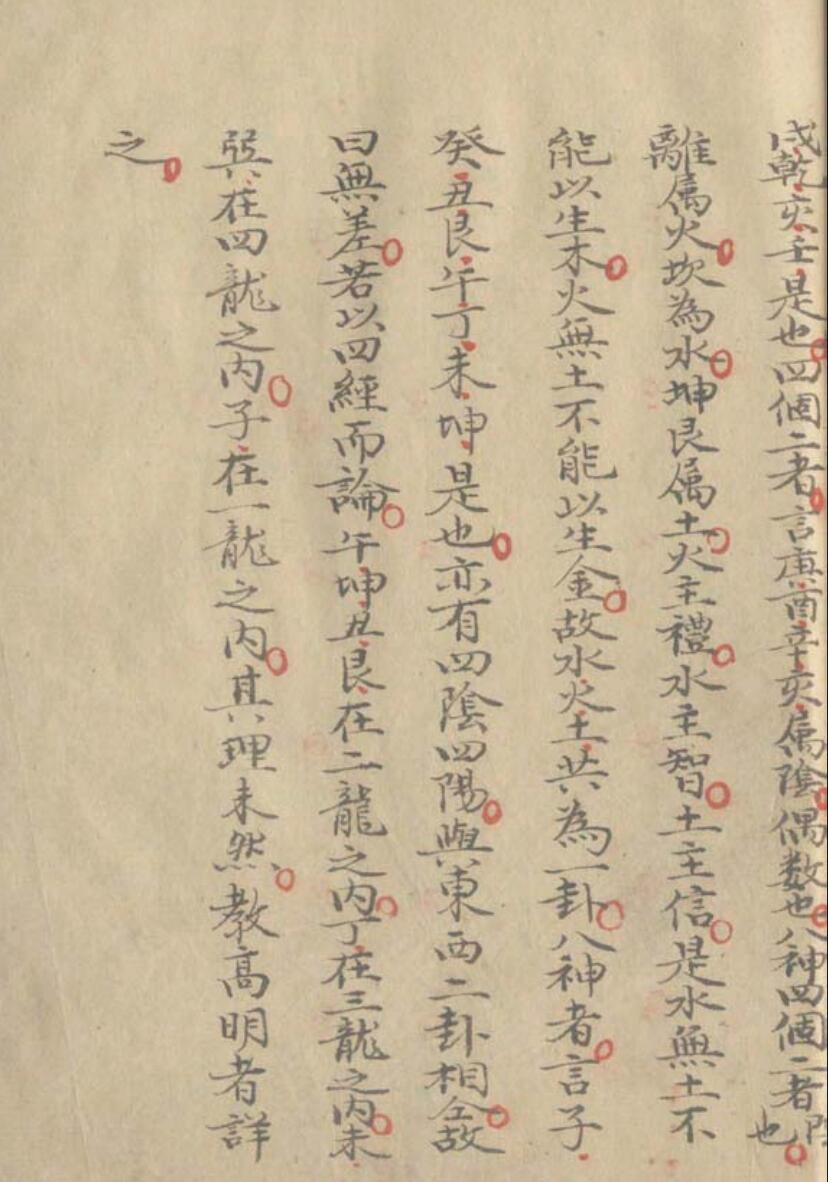 戌乾亥壬是也四個二者言庚酉辛亥属陰偶数也八神四個二者陰也
離属火坎為水坤艮属土火主禮水主智土主信是水無土不
能以生木火無土不能以生金故水火土共為一卦八神者言子
癸丑艮午丁未坤是也亦有四陰四陽與東西二卦相仝故
曰無差若以四經而論午坤丑艮在二龍之内丁在三龍之内未
癸在四龍之内子在一龍之内其理未然教高明者詳
之